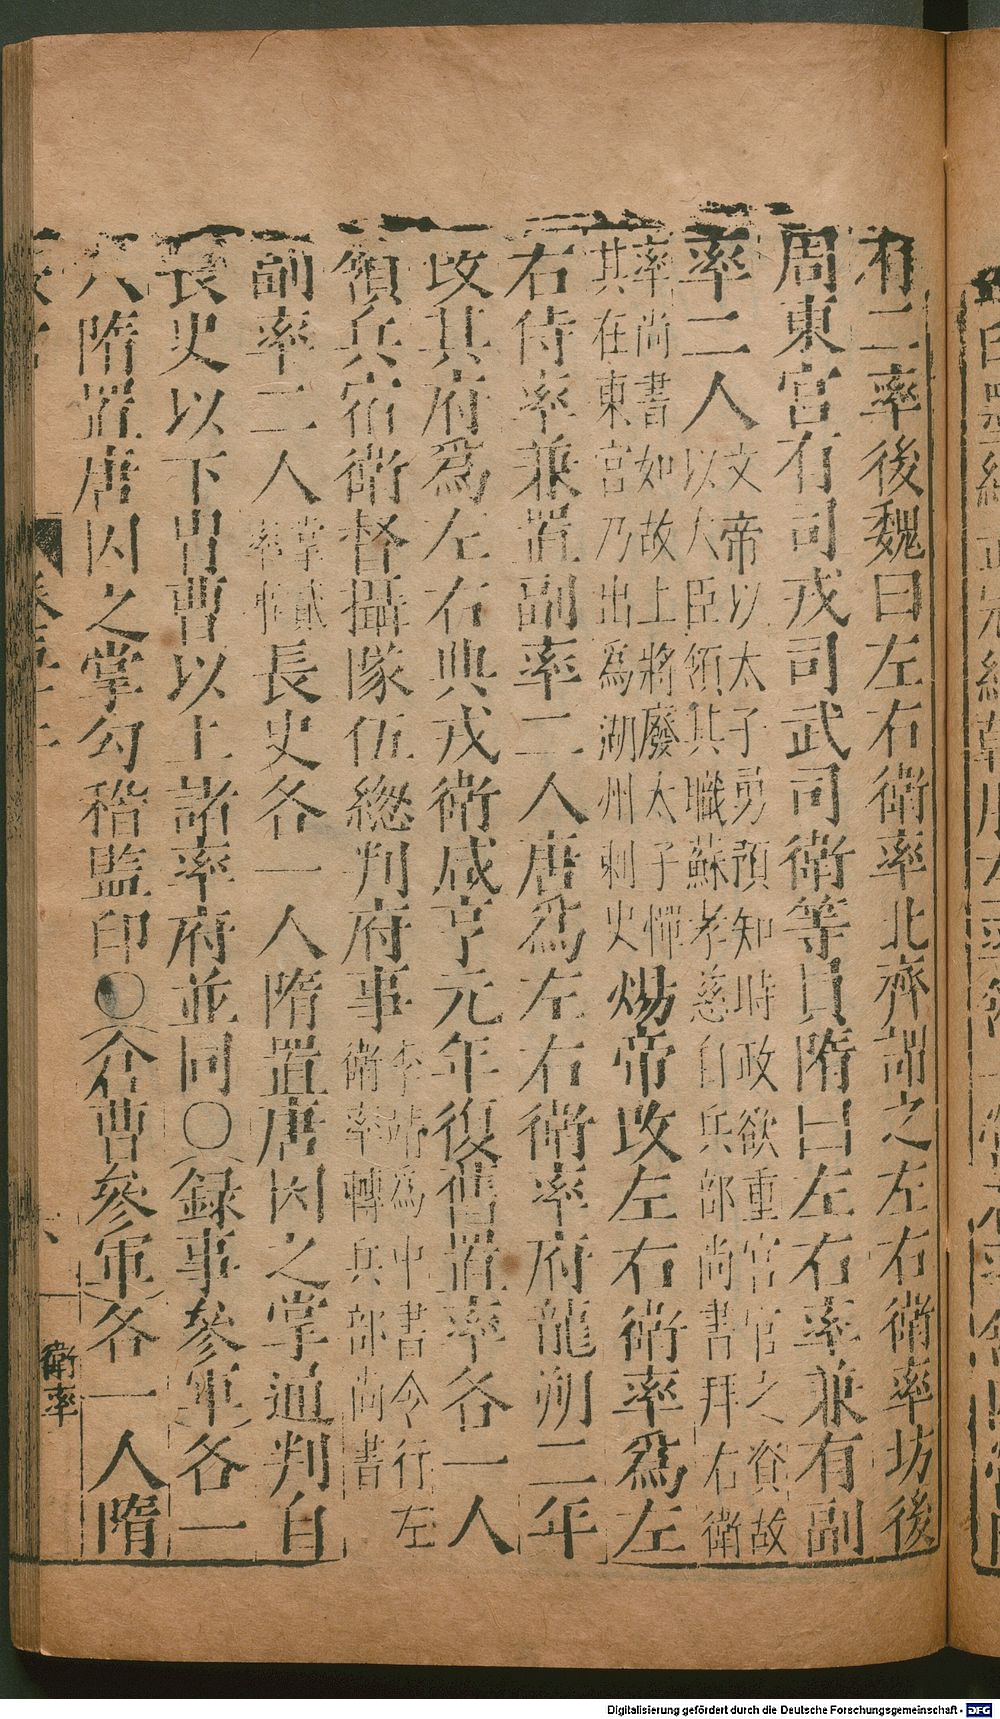 有二率後魏曰左右衛率北齊謂之左右衛率坊後
周東宮有司戎司武司衛等員隋曰左右率兼有副
率二人文帝以太子勇頗知時政欲重宮官之資故
以大臣領其職蘇孝慈自兵部尚書拜右衛
率尚書如故上將廢太子憚
其在東宮乃出爲湖州刺史煬帝改左右衛率爲左
右侍率兼置副率二人唐爲左右衛率府龍朔二年
改其府爲左右典戎衛咸亨元年復舊置率各一人
領兵宿衛督攝隊伍緫判府事李靖爲中書令行左
衛率轉兵部尚書
副率二人掌貳
率事長史各一人隋置唐因之掌通判自
長史以下冑曹以上諸率府並同○録事參軍各一
人隋置唐因之掌勾稽監印○倉曹參軍各一人隋
衛率
Digitalisierung gefördert durch die Deutsche Forschungsgemeinschaft - DFG